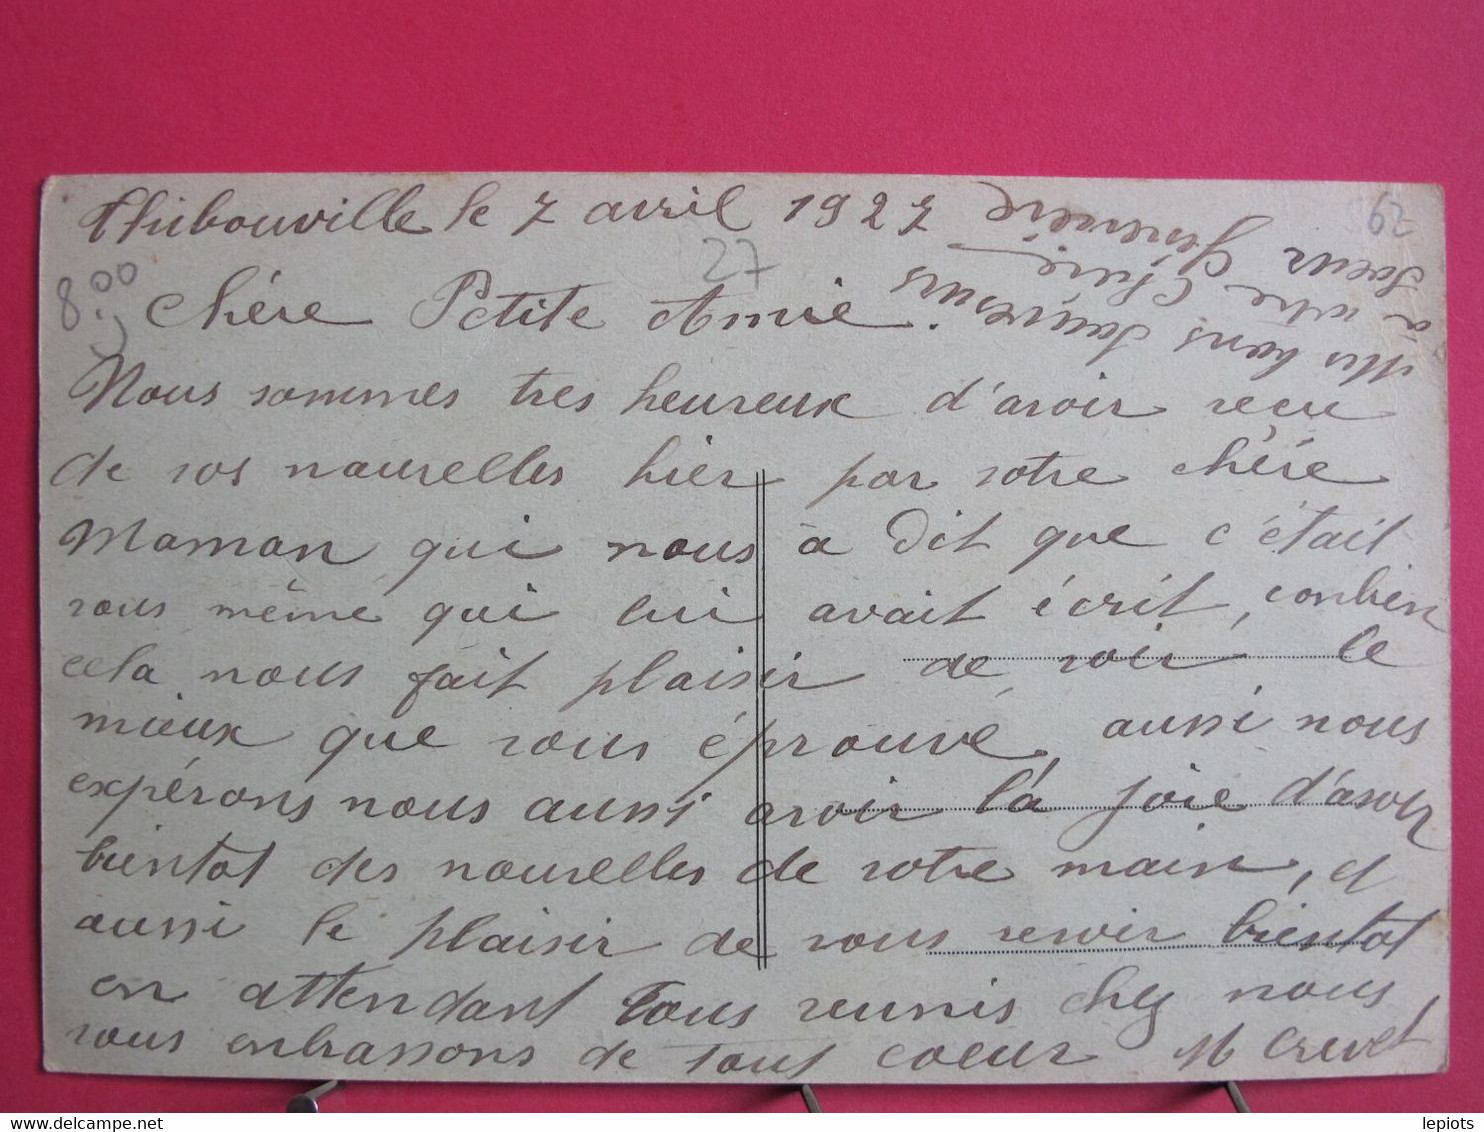 Thibouville le 7 avril 1927
62
27
8.00
Chére Petite Amie.
Nous sommes tres heureux d'avoir reçu
de vos nouvelles hier par votre chére
Maman qui nous à dit que c'était
vous même qui lui avait écrit, conbien
cela nous fait plaisir de voir le
mieux que vous éprouvé, aussi nous
expérons nous aussi avoir la joie d'avoir
bientot des nouvelles de votre main, et
aussi le plaisir de vous revoir bientot
en attendant Tous reunis chez nous
vous enbrassons de tout coeur M Crevet
Mes bons Souvenirs
à votre Chérie
Soeur Genevieve
lepiots